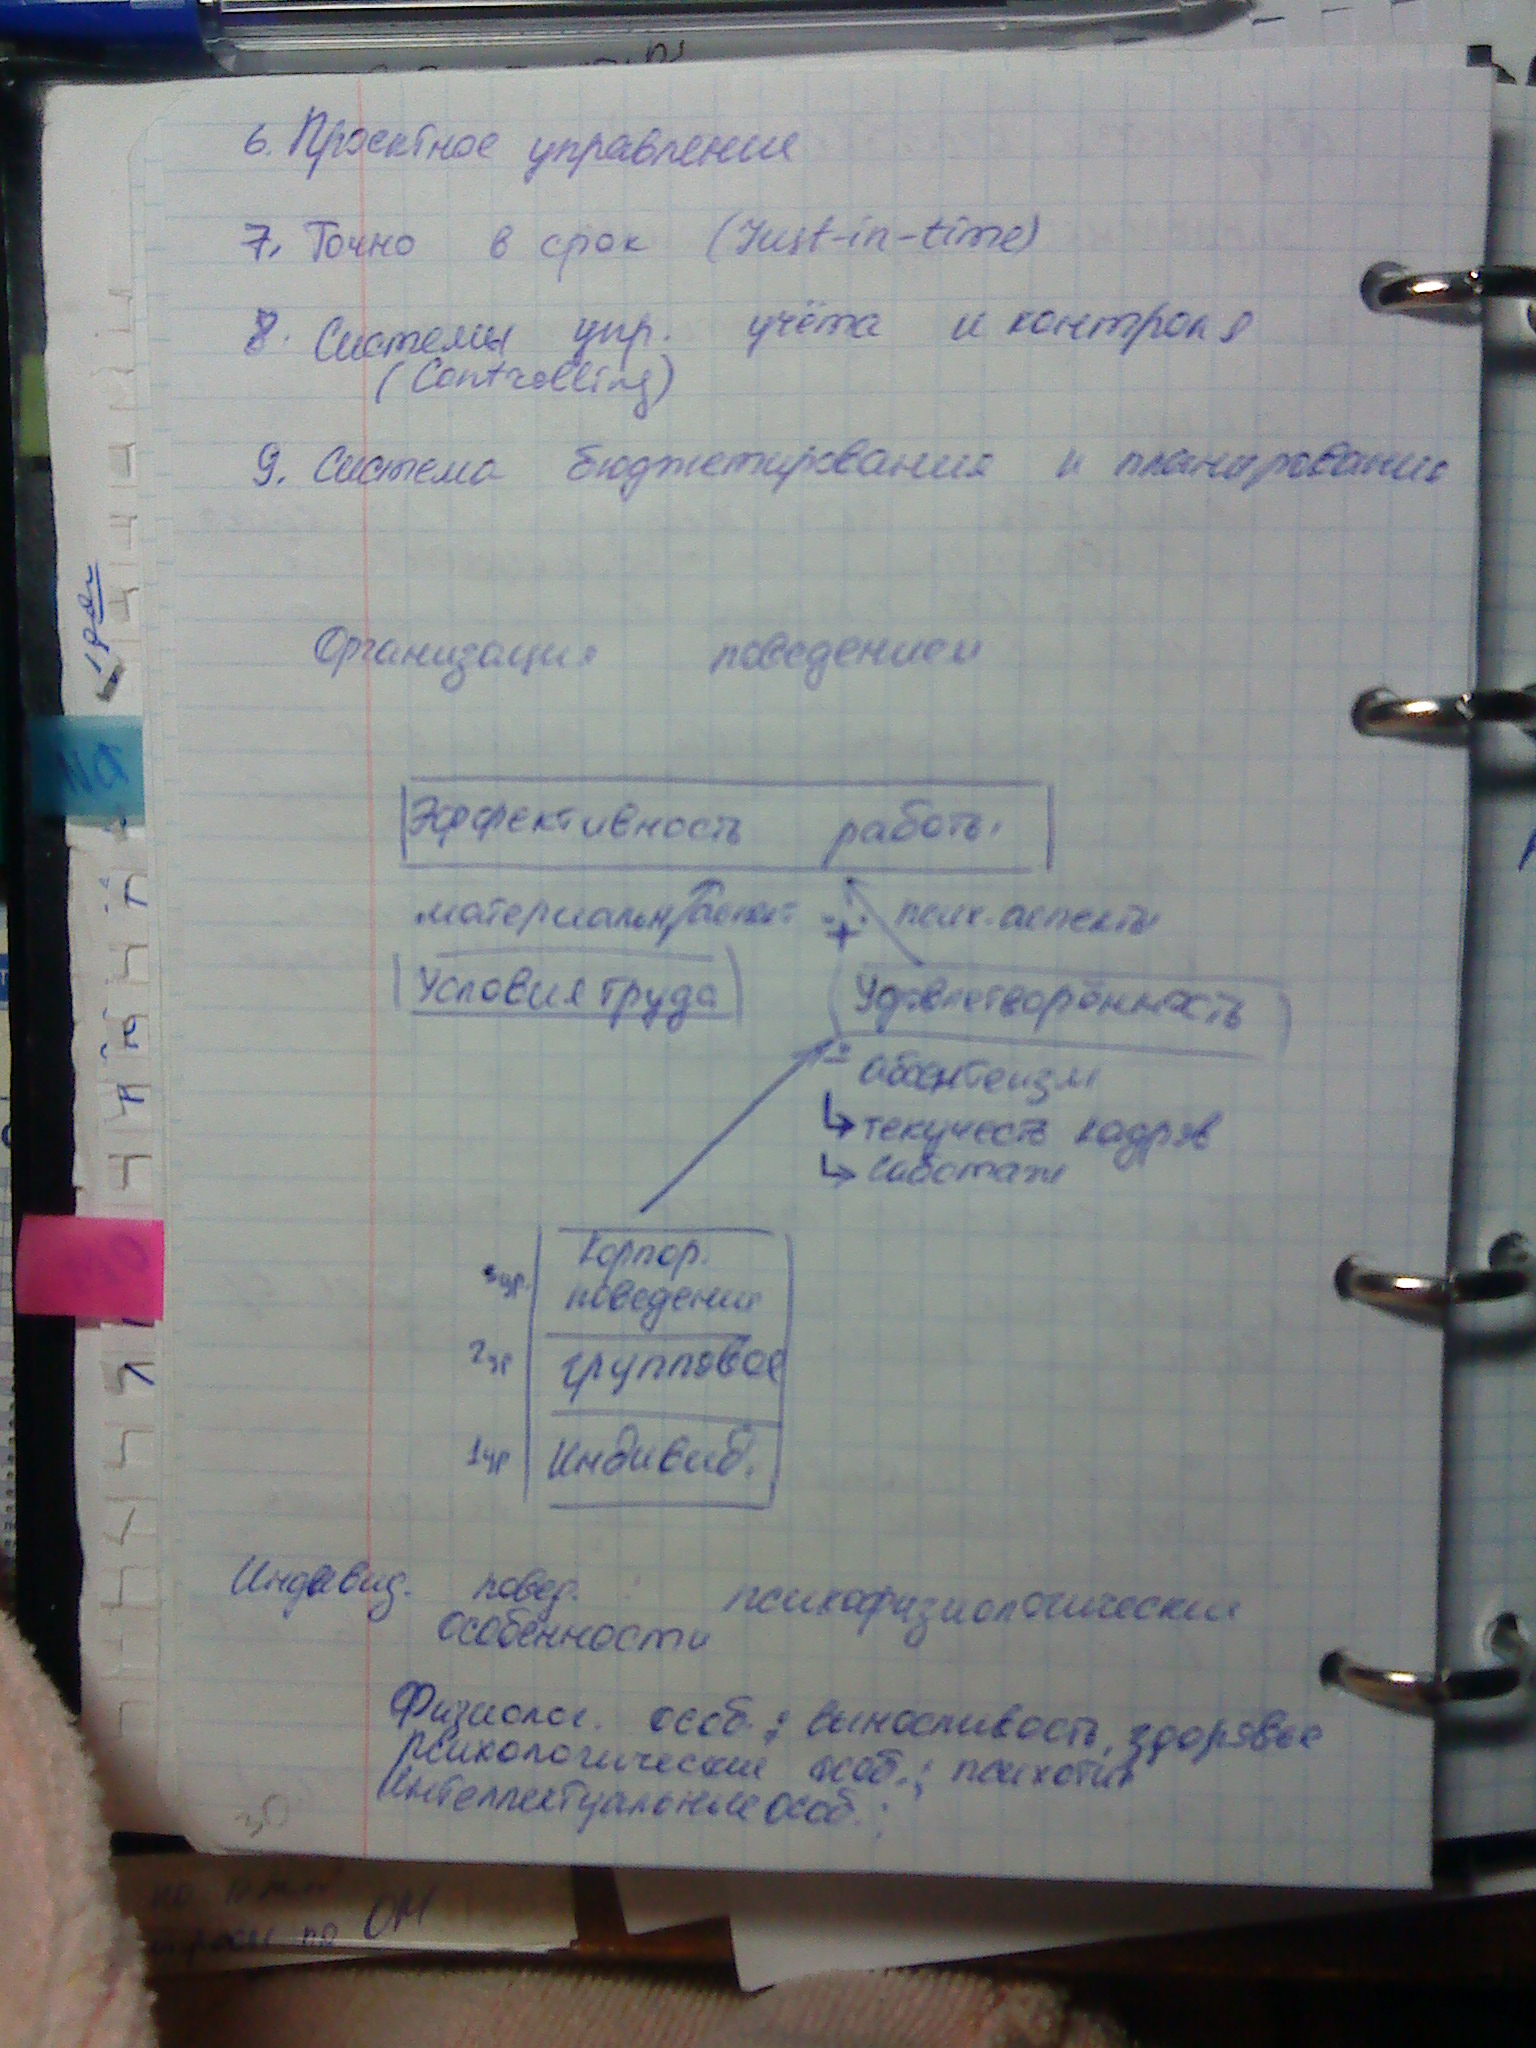 6. Проектное управление
7. Точно в срок (Just-in-time)
8. Системы упр. учёта и контроля
(Controlling)
9. Система бюджетирования и планирования
Организация поведением
Эффективность работы
материальн. псих. аспекты
+
Условия труда Удовлетворённость
- абсентеизм
↳ текучесть кадров
↳ саботаж
3 ур. Корпор.
поведение
2 ур групповое
1 ур Индивид.
Индивид. повед. : психофизиологические
особенности
Физиолог. особ.: выносливость, здоровье
психологические особ.; психотип
Интеллектуальные особ.;
30
ОМ